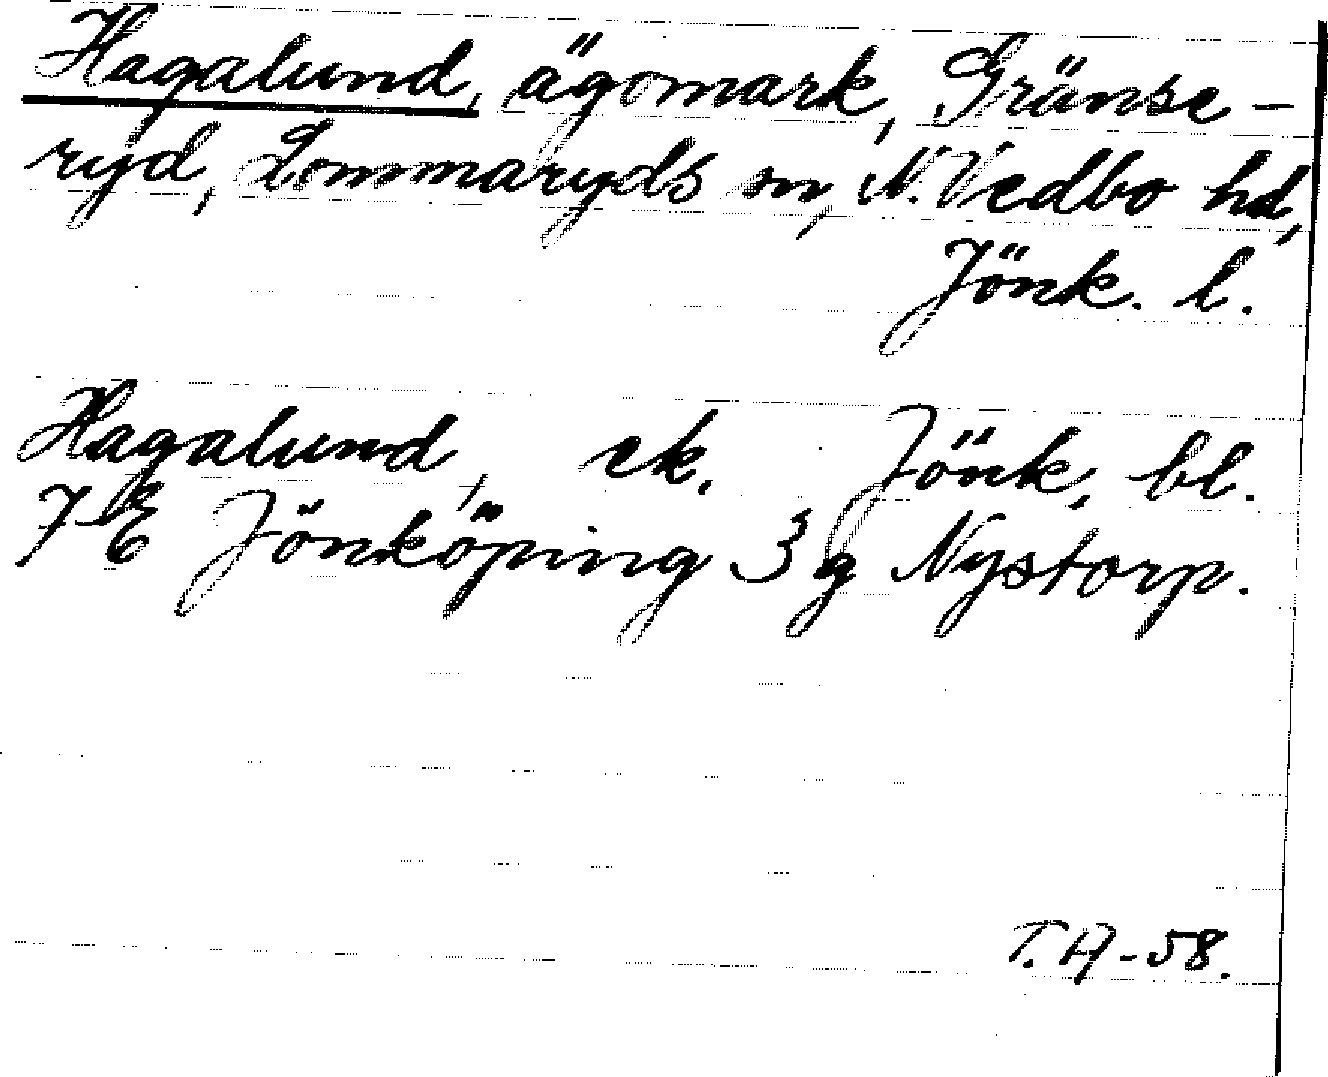 Hagalund, ägomark, Gränse-
ryd, Lommaryds sn, N. Vedbo hd,
Jönk. l.
Hagalund, ek. Jönk, bl.
7 E Jönköping 3 g Nystorp.
T. A -58.